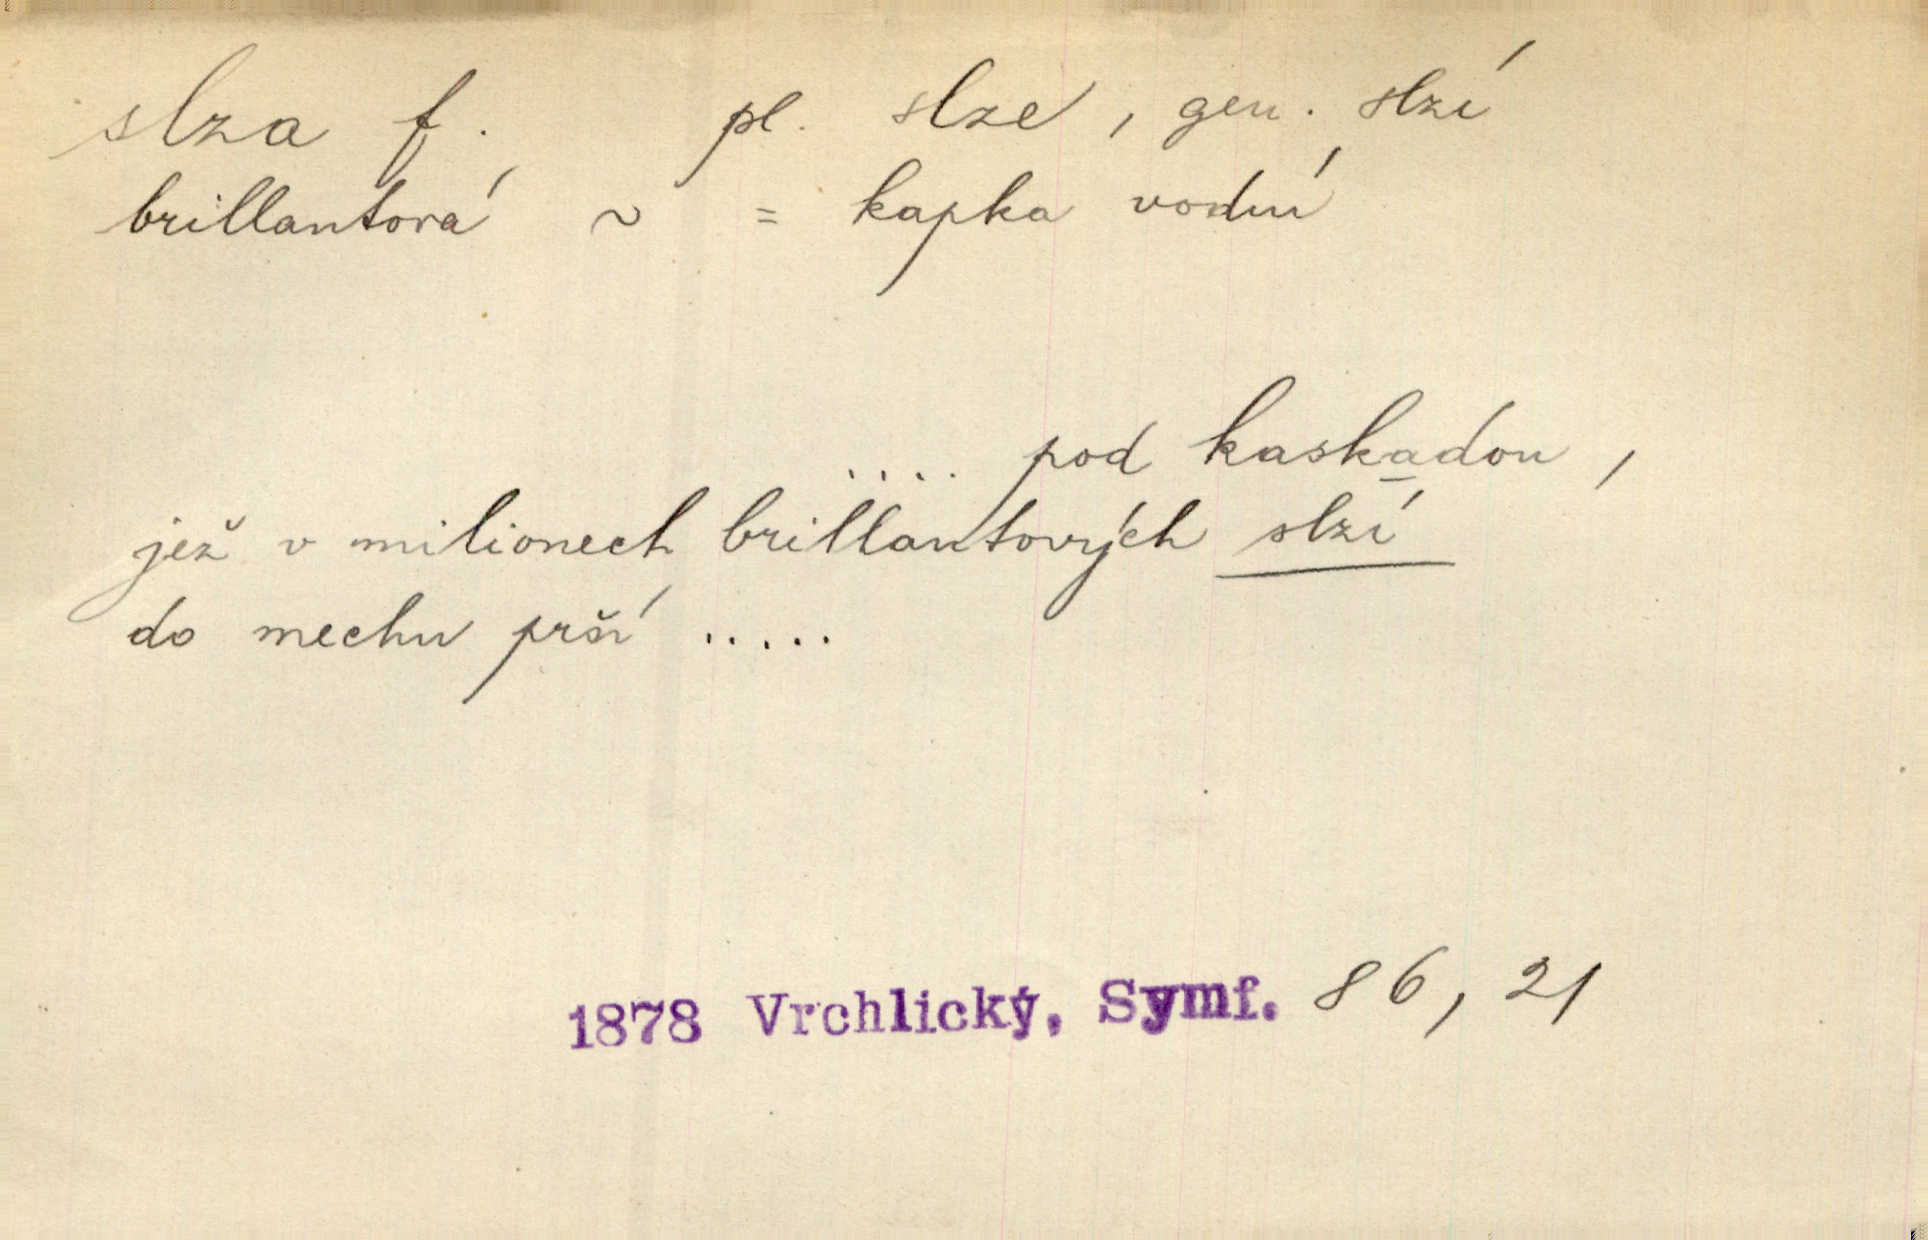 slza f. pl. slze, gen. slzí
brillantová ~ = kapka vodní
.... pod kaskadou,
jež v milionech brillantových slzí
do mechu prší .....
1878 Vrchlický, Symf. 86, 21